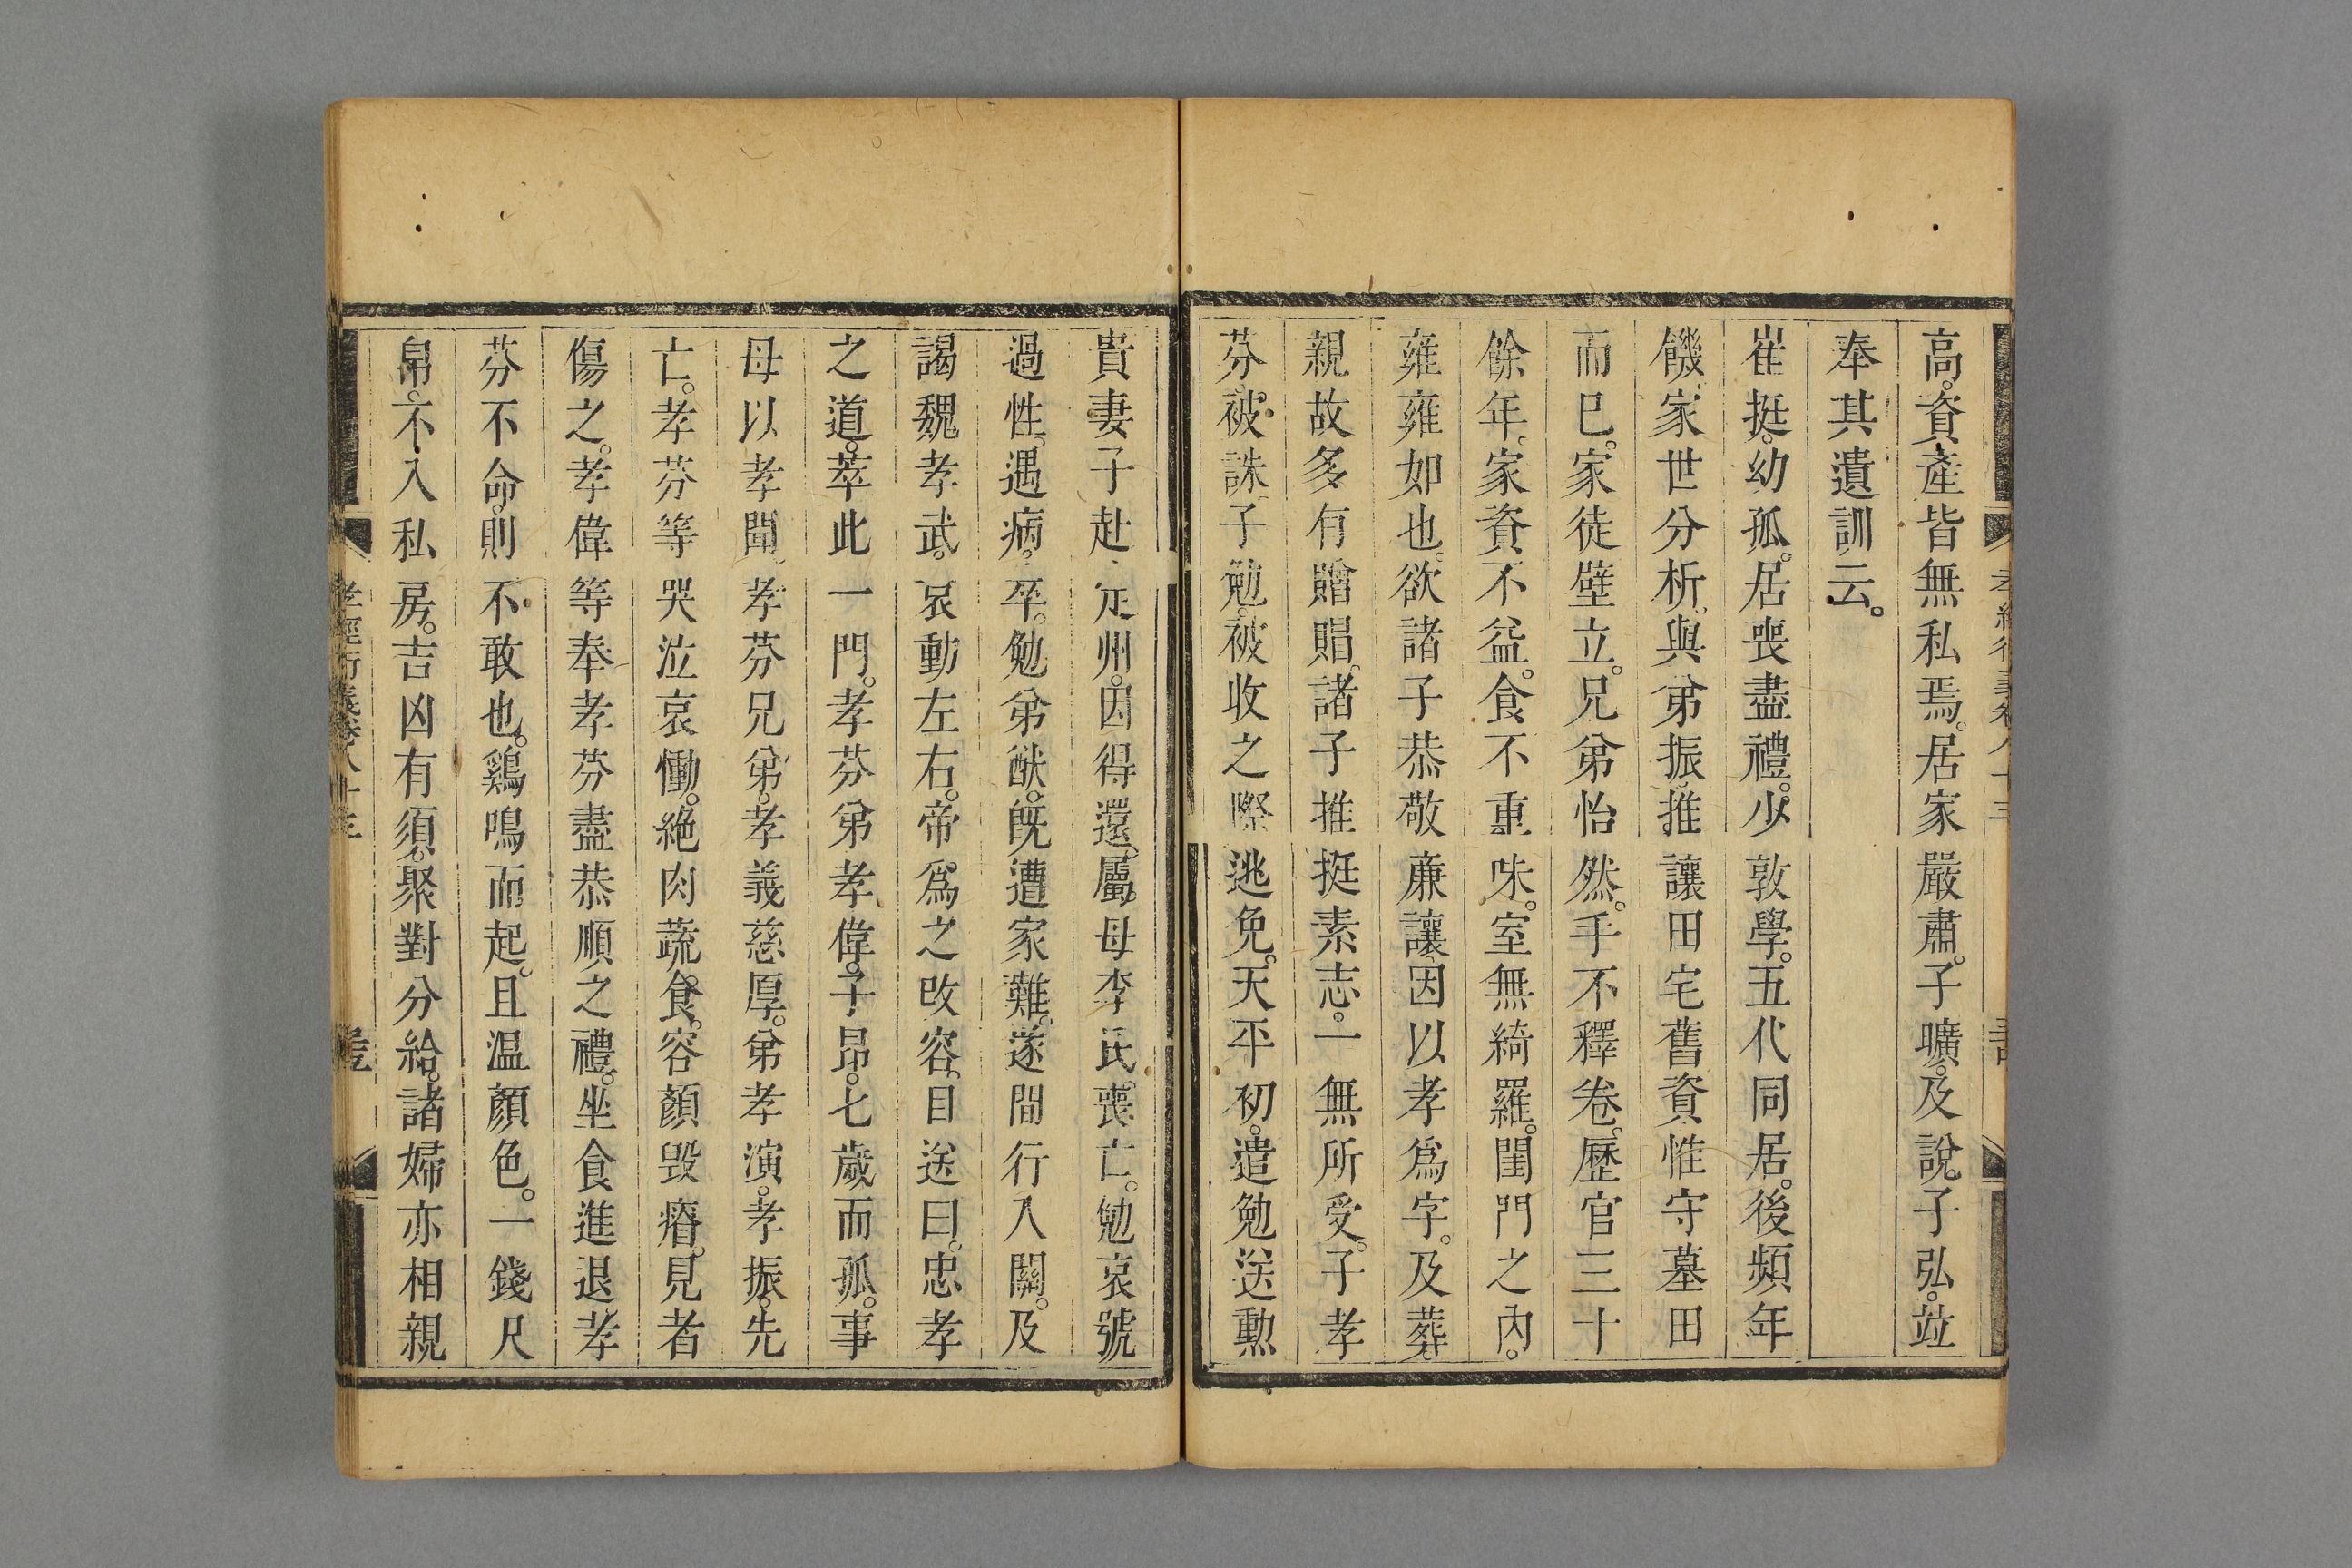 高。資產皆無私焉。居家嚴肅。子曠。及說子弘。竝
奉其遺訓云。
崔挺。幼孤。居喪盡禮。少敦學。五代同居。後頻年
饑。家世分析。與弟振。推讓田宅舊資。惟守墓田
而已。家徒壁立。兄弟怡然。手不釋卷。歷官三十
餘年。家資不益。食不重味。室無綺羅。閨門之內。
雍雍如也。欲諸子恭敬亷讓。因以孝爲字。及葬。
親故多有贈賵。諸子推挺素志。一無所受。子孝
芬。被誅。子勉。被收之際。逃免。天平初。遣勉送勲
貴妻子赴定州。因得還。屬。母李氏。喪亡。勉哀號
過性。遇病。卒。勉弟猷。旣遭家難。遂間行入關。及
謁魏孝武。哀動左右。帝爲之改容。目送曰。忠孝
之道。萃此一門。孝芬弟孝偉。子昂。七歲而孤。事
母以孝聞。孝芬兄弟。孝義慈厚。弟孝演。孝振。先
亡。孝芬等哭泣哀慟。絶肉蔬食。容顏毀瘠。見者
傷之。孝偉等奉孝芬盡恭順之禮。坐食進退。孝
芬不命。則不敢也。鷄鳴而起。且温顏色。一錢尺
帛。不入私房。吉凶有須。聚對分給。諸婦亦相親
孝經衍義卷八十三